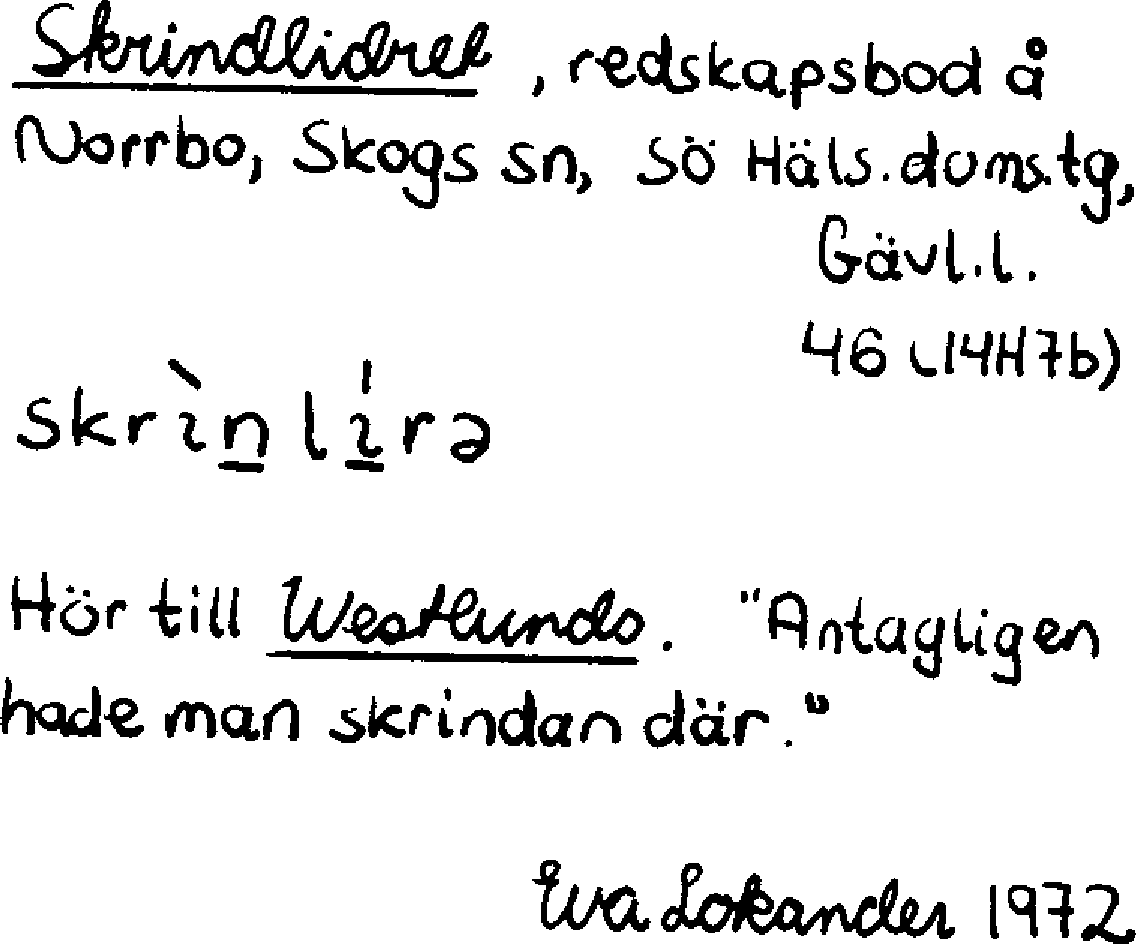 Skrindlidret, redskapsbod å
Norrbo, Skogs sn, Sö Häls.doms.tg,
Gävl.l.
46 (14H7b)
skrìn lírə
Hör till Westlunds. "Antagligen
hade man skrindan där."
Eva Lokander 1972